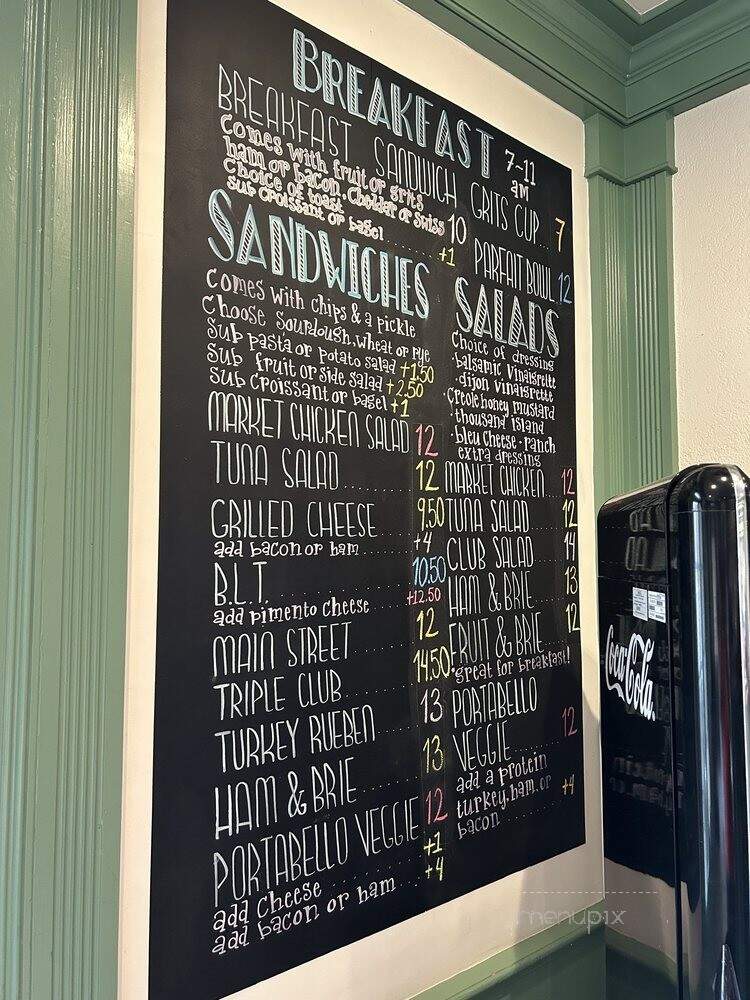 BREAKFAST 7-11 AM
BREAKFAST SANDWICH
Comes with fruit or grits
ham or bacon. Cheddar or Swiss
Choice of toast ...... 10
sub croissant or bagel ...... +1
GRITS CUP... 7
PARFAIT BOWL. 12
SANDWICHES
Comes with chips & a pickle
Choose Sourdough, wheat or rye
Sub pasta or potato salad +1.50
Sub fruit or side salad +2.50
Sub croissant or bagel +1
MARKET CHICKEN SALAD 12
TUNA SALAD ...... 12
GRILLED CHEESE ..... 9.50
add bacon or ham ...... +4
B.L.T. ...... 10.50
add pimento cheese ..... +12.50
MAIN STREET ...... 12
TRIPLE CLUB ...... 14.50
TURKEY RUEBEN .... 13
HAM & BRIE ...... 13
PORTABELLO VEGGIE 12
add cheese ...... +1
add bacon or ham ... +4
SALADS
Choice of dressing
·balsamic vinaigrette
·dijon vinaigrette
·Creole honey mustard
·thousand island
·bleu cheese ·ranch
extra dressing
MARKET CHICKEN... 12
TUNA SALAD..... 12
CLUB SALAD.... 14
HAM & BRIE.... 13
FRUIT & BRIE... 12
·great for breakfast!
PORTABELLO
VEGGIE...... 12
add a protein
turkey, ham, or
bacon ...... +4
Coca-Cola
menupix